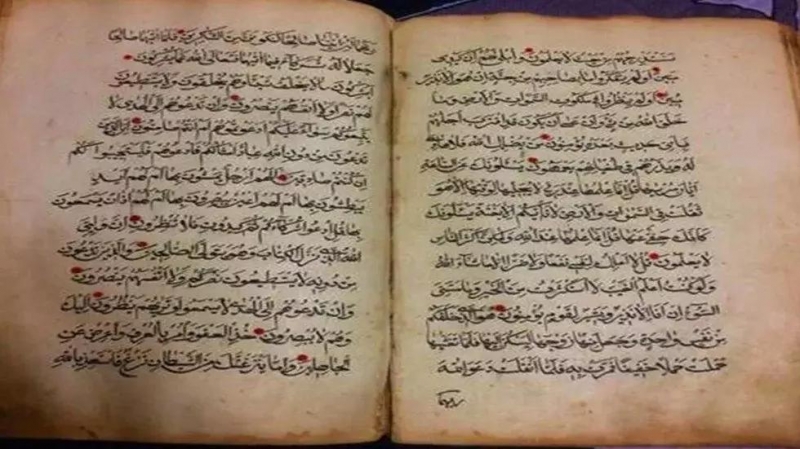 سنستدرجهم من حيث لا يعلمون واملي لهم ان كيدي
متين اولم يتفكروا ما بصاحبهم من جنة ان هو الا نذير
مبين اولم ينظروا في ملكوت السموات والارض وما
خلق الله من شيء وان عسى ان يكون قد اقترب اجلهم
فباي حديث بعده يؤمنون من يضلل الله فلا هادي
له ويذرهم في طغيانهم يعمهون يسئلونك عن الساعة
ايان مرسيها قل انما علمها عند ربي لا يجليها لوقتها الا هو
ثقلت في السموات والارض لا تاتيكم الا بغتة يسئلونك
كانك حفي عنها قل انما علمها عند الله ولكن اكثر الناس
لا يعلمون قل لا املك لنفسي نفعا ولا ضرا الا ما شاء الله
ولو كنت اعلم الغيب لاستكثرت من الخير وما مسني
السوء ان انا الا نذير وبشير لقوم يؤمنون هو الذي خلقكم
من نفس واحدة وجعل منها زوجها ليسكن اليها فلما تغشيها
حملت حملا خفيفا فمرت به فلما اثقلت دعوا الله
ربهما
ربهما لئن اتيتنا صالحا لنكونن من الشاكرين فلما اتيهما صالحا
جعلا له شركاء فيما اتيهما فتعالى الله عما يشركون
ايشركون ما لا يخلق شيئا وهم يخلقون ولا يستطيعون
لهم نصرا ولا انفسهم ينصرون وان تدعوهم الى الهدى لا
يتبعوكم سواء عليكم ادعوتموهم ام انتم صامتون ان الذين
تدعون من دون الله عباد امثالكم فادعوهم فليستجيبوا لكم
ان كنتم صادقين الهم ارجل يمشون بها ام لهم ايد
يبطشون بها ام لهم اعين يبصرون بها ام لهم اذان يسمعون
بها قل ادعوا شركاءكم ثم كيدون فلا تنظرون ان وليي
الله الذي نزل الكتاب وهو يتولى الصالحين والذين تدعون
من دونه لا يستطيعون نصركم ولا انفسهم ينصرون
وان تدعوهم الى الهدى لا يسمعوا وتريهم ينظرون اليك
وهم لا يبصرون خذ العفو وامر بالعرف واعرض عن
الجاهلين واما ينزغنك من الشيطان نزغ فاستعذ بالله